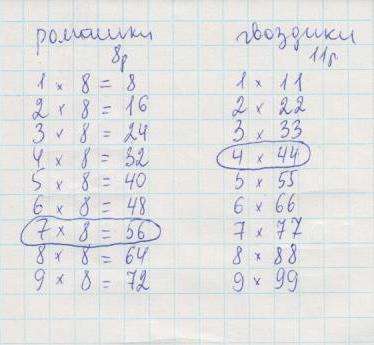 ромашки
8р
1 × 8 = 8
2 × 8 = 16
3 × 8 = 24
4 × 8 = 32
5 × 8 = 40
6 × 8 = 48
7 × 8 = 56
8 × 8 = 64
9 × 8 = 72
гвоздики
11р
1 × 11
2 × 22
3 × 33
4 × 44
5 × 55
6 × 66
7 × 77
8 × 88
9 × 99